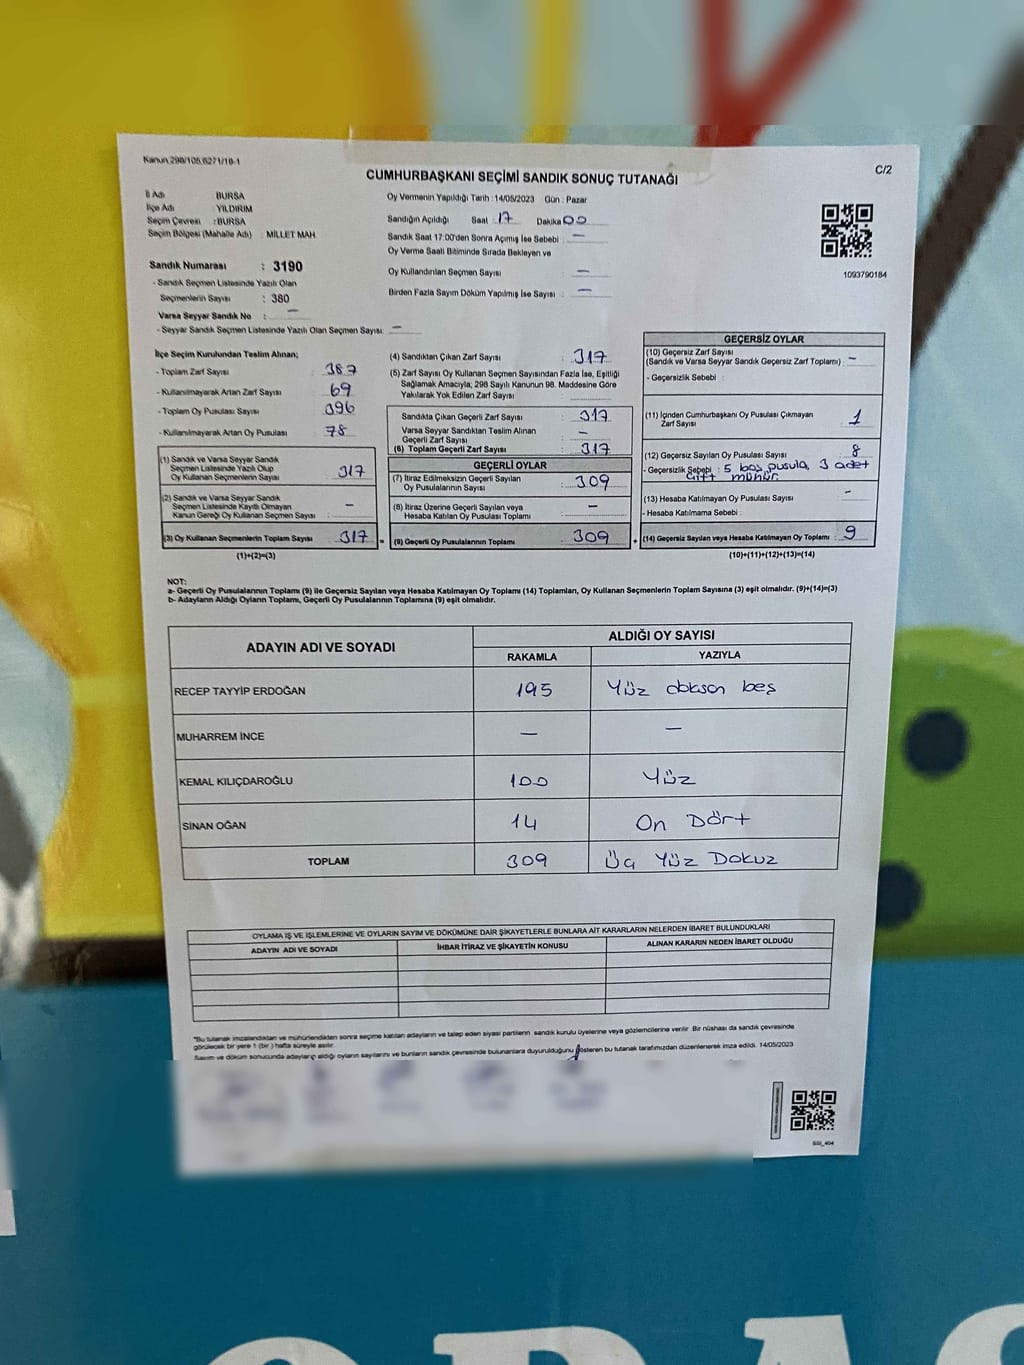 Kanun,298/105,6271/18-1
C/2
CUMHURBAŞKANI SEÇİMİ SANDIK SONUÇ TUTANAĞI
İl Adı : BURSA
İlçe Adı : YILDIRIM
Seçim Çevresi : BURSA
Seçim Bölgesi (Mahalle Adı) : MİLLET MAH.
Sandık Numarası : 3190
- Sandık Seçmen Listesinde Yazılı Olan
Seçmenlerin Sayısı : 380
Varsa Seyyar Sandık No : —
- Seyyar Sandık Seçmen Listesinde Yazılı Olan Seçmen Sayısı: —
Oy Vermenin Yapıldığı Tarih : 14/05/2023 Gün : Pazar
Sandığın Açıldığı Saat : 17 Dakika 00
Sandık Saat 17:00'den Sonra Açımış İse Sebebi : —
Oy Verme Saati Bitiminde Sırada Bekleyen ve
Oy Kullandırılan Seçmen Sayısı : —
Birden Fazla Sayım Döküm Yapılmış İse Sayısı : —
1093790184
İlçe Seçim Kurulundan Teslim Alınan;
- Toplam Zarf Sayısı : 387
- Kullanılmayarak Artan Zarf Sayısı : 69
- Toplam Oy Pusulası Sayısı : 396
- Kullanılmayarak Artan Oy Pusulası : 78
(1) Sandık ve Varsa Seyyar Sandık
Seçmen Listesinde Yazılı Olup
Oy Kullanan Seçmenlerin Sayısı : 317
(2) Sandık ve Varsa Seyyar Sandık
Seçmen Listesinde Kayıtlı Olmayan
Kanun Gereği Oy Kullanan Seçmen Sayısı : —
(3) Oy Kullanan Seçmenlerin Toplam Sayısı : 317 =
(1)+(2)=(3)
(4) Sandıktan Çıkan Zarf Sayısı : 317
(5) Zarf Sayısı Oy Kullanan Seçmen Sayısından Fazla İse, Eşitliği
Sağlamak Amacıyla; 298 Sayılı Kanunun 98. Maddesine Göre
Yakılarak Yok Edilen Zarf Sayısı :
Sandıkta Çıkan Geçerli Zarf Sayısı : 317
Varsa Seyyar Sandıktan Teslim Alınan
Geçerli Zarf Sayısı : —
(6) Toplam Geçerli Zarf Sayısı : 317
GEÇERLİ OYLAR
(7) İtiraz Edilmeksizin Geçerli Sayılan
Oy Pusulalarının Sayısı : 309
(8) İtiraz Üzerine Geçerli Sayılan veya
Hesaba Katılan Oy Pusulası Toplamı : —
(9) Geçerli Oy Pusulalarının Toplamı : 309 +
GEÇERSİZ OYLAR
(10) Geçersiz Zarf Sayısı
(Sandık ve Varsa Seyyar Sandık Geçersiz Zarf Toplamı) : —
- Geçersizlik Sebebi :
(11) İçinden Cumhurbaşkanı Oy Pusulası Çıkmayan
Zarf Sayısı : 1
(12) Geçersiz Sayılan Oy Pusulası Sayısı : 8
- Geçersizlik Sebebi : 5 boş pusula, 3 adet
çift mühür.
(13) Hesaba Katılmayan Oy Pusulası Sayısı : —
- Hesaba Katılmama Sebebi :
(14) Geçersiz Sayılan veya Hesaba Katılmayan Oy Toplamı : 9
(10)+(11)+(12)+(13)=(14)
NOT:
a- Geçerli Oy Pusulalarının Toplamı (9) ile Geçersiz Sayılan veya Hesaba Katılmayan Oy Toplamı (14) Toplamları, Oy Kullanan Seçmenlerin Toplam Sayısına (3) eşit olmalıdır. (9)+(14)=(3)
b- Adayların Aldığı Oyların Toplamı, Geçerli Oy Pusulalarının Toplamına (9) eşit olmalıdır.
ADAYIN ADI VE SOYADI
ALDIĞI OY SAYISI
RAKAMLA YAZIYLA
RECEP TAYYİP ERDOĞAN 195 Yüz doksan beş
MUHARREM İNCE — —
KEMAL KILIÇDAROĞLU 100 Yüz
SİNAN OĞAN 14 On Dört
TOPLAM 309 Üç Yüz Dokuz
OYLAMA İŞ VE İŞLEMLERİNE VE OYLARIN SAYIM VE DÖKÜMÜNE DAİR ŞİKAYETLERLE BUNLARA AİT KARARLARIN NELERDEN İBARET BULUNDUKLARI
ADAYIN ADI VE SOYADI İHBAR İTİRAZ VE ŞİKAYETİN KONUSU ALINAN KARARIN NEDEN İBARET OLDUĞU
*Bu tutanak imzalandıktan ve mühürlendikten sonra seçime katılan adayların ve talep eden siyasi partilerin sandık kurulu üyelerine veya gözlemcilerine verilir. Bir nüshası da sandık çevresinde
görülecek bir yere 1 (bir) hafta süreyle asılır.
Sayım ve döküm sonucunda adayların aldığı oyların sayılarını ve bunların sandık çevresinde bulunanlara duyurulduğunu gösteren bu tutanak tarafımızdan düzenlenerek imza edildi. 14/05/2023